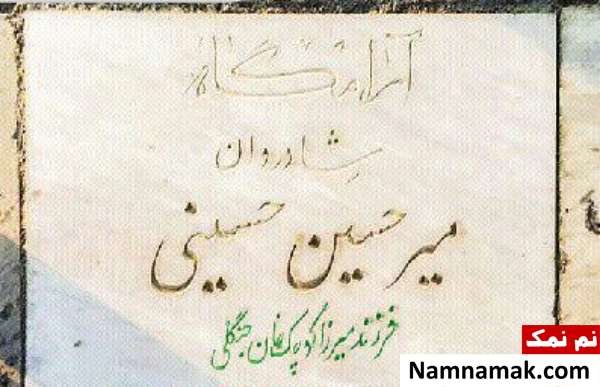 آرامگاه
شادروان
میر حسین حسینی
فرزند میرزا کوچک خان جنگلی
نم نمک
Namnamak.com